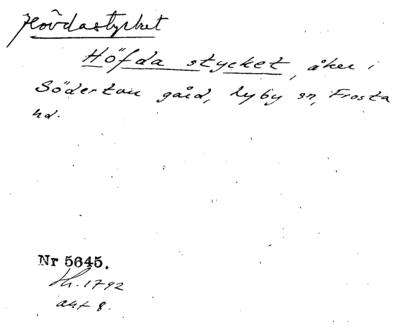 Hövdastycket
Höfda stycket, åker i
Södertou gård, Lyby sn, Frosta
hd.
Nr 5645.
Th. 1792
akt 8.